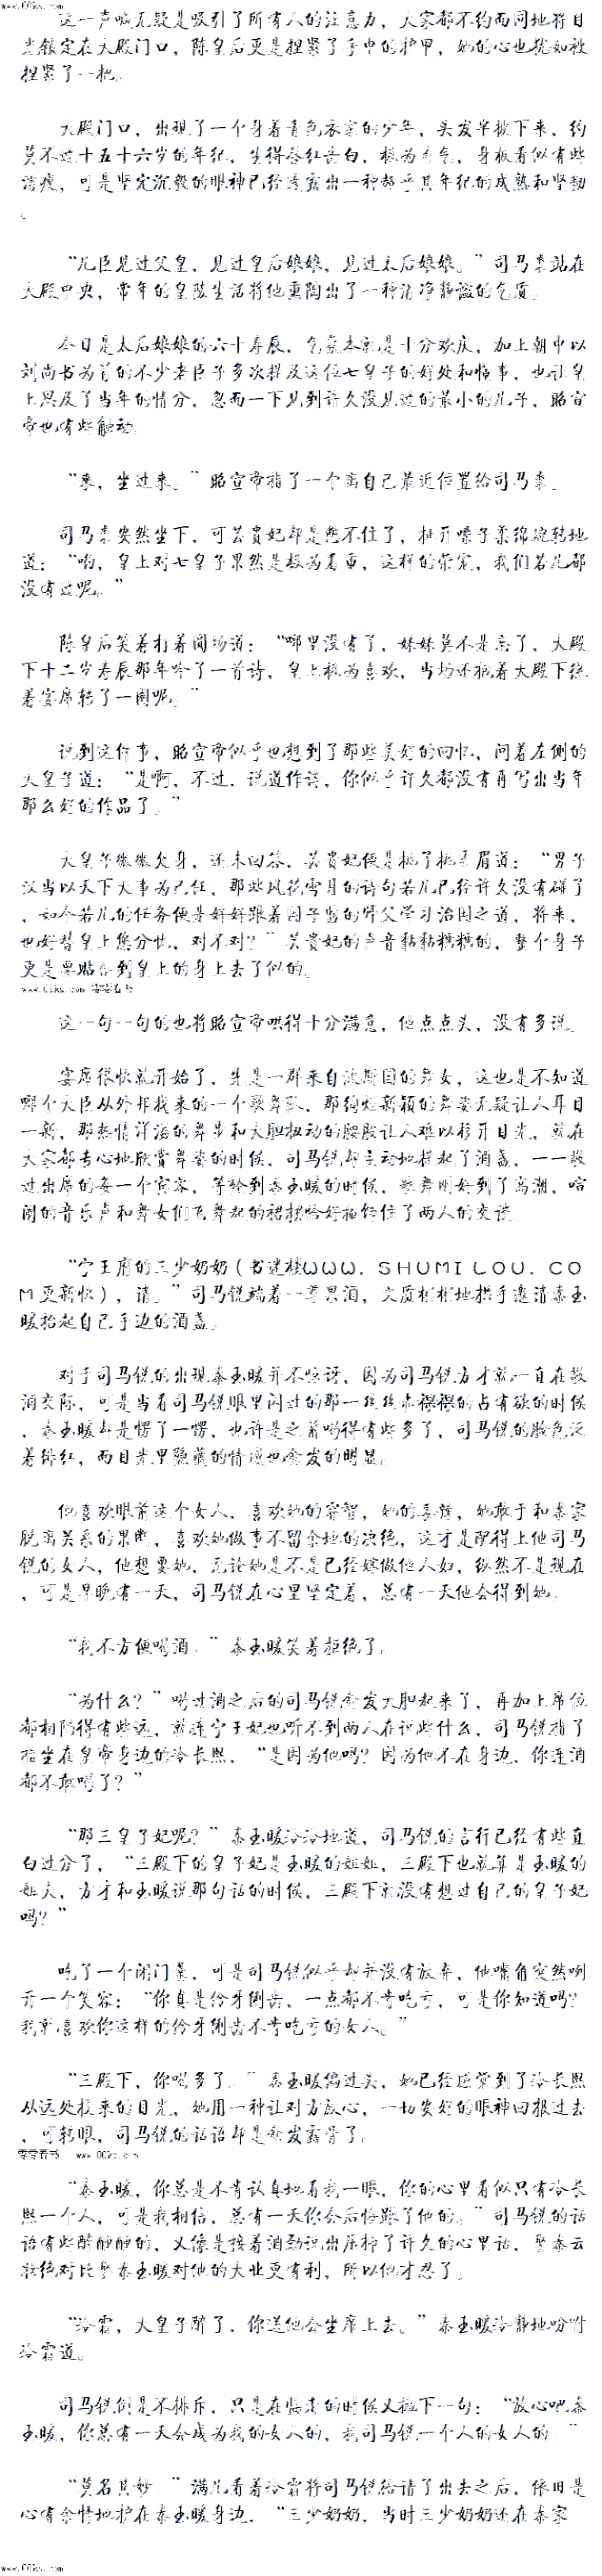 www.00ks.com
这一声喊无疑是吸引了所有人的注意力，大家都不约而同地将目
光锁定在大殿门口，陈皇后更是捏紧了手中的护甲，她的心也犹如被
捏紧了一把。
大殿门口，出现了一个身着青色衣裳的少年，头发半披下来，约
莫不过十五十六岁的年纪，生得唇红齿白，极为秀气，身板看似有些
清瘦，可是坚定沉毅的眼神已经透露出一种超乎其年纪的成熟和坚韧
。
“儿臣见过父皇，见过皇后娘娘，见过太后娘娘。”司马睿站在
大殿中央，常年的皇陵生活将他熏陶出了一种清净静谧的气质。
今日是太后娘娘的六十寿辰，气氛本就是十分欢庆，加上朝中以
刘尚书为首的不少老臣子多次提及这位七皇子的好处和懂事，也让皇
上思及了当年的情分，忽而一下见到许久没见过的最小的儿子，昭宣
帝也有些触动。
“来，坐过来。”昭宣帝指了一个离自己最近位置给司马
司马　安然坐下，可芸贵妃却是憋不住了，扯开嗓子柔绵婉转地
道：“哟，皇上对七皇子果然是极为看重，这样的荣宠，我们若儿都
没有过呢。”
陈皇后笑着打着圆场道：“哪里没有了，妹妹莫不是忘了，大殿
下十二岁寿辰那年吟了一首诗，皇上极为喜欢，当场还抱着大殿下绕
着宴席转了一圈呢。”
说到这件事，昭宣帝似乎也想到了那些美好的回忆，问着左侧的
大皇子道：“是啊，不过，说道作诗，你似乎许久都没有再写出当年
那么好的作品了。”
大皇子微微欠身，还未回答，芸贵妃便是挑了挑柔眉道：“男子
汉当以天下大事为己任，那些风花雪月的诗句若儿已经许久没有碰了
，如今若儿的任务便是好好跟着国子监的师父学习治国之道，将来，
也好替皇上您分忧，对不对？”芸贵妃的声音黏黏糖糖的，整个身子
更是要贴合到皇上的身上去了似的。
www.00ks.com 零零看书
这一句一句的也将昭宣帝哄得十分满意，他点点头，没有多说。
宴席很快就开始了，先是一群来自波斯国的舞女，这也是不知道
哪个大臣从外邦找来的一个歌舞队，那绚烂新颖的舞姿无疑让人耳目
一新，那热情洋溢的舞步和大胆扭动的腰肢让人难以移开目光，就在
大家都专心地欣赏舞姿的时候，司马锐却主动地提起了酒盏，一一敬
过出席的每一个宾客，等轮到秦玉暖的时候，歌舞刚好到了高潮，喧
闹的音乐声和舞女们飞舞起的裙摆恰好掩饰住了两人的交谈。
“宁王府的三少奶奶（书迷楼ＷＷＷ．ＳＨＵＭＩＬＯＵ．ＣＯ
Ｍ更新快），请。”司马锐端着一尊果酒，文质彬彬地拱手邀请秦玉
暖抬起自己手边的酒盏。
对于司马锐的出现秦玉暖并不惊讶，因为司马锐方才就一直在敬
酒交际，可是当看司马锐眼里闪过的那一丝丝赤裸裸的占有欲的时候
，秦玉暖却是愣了一愣，也许是之前喝得有些多了，司马锐的脸色泛
着绯红，而目光里隐藏的情感也愈发的明显。
他喜欢眼前这个女人，喜欢她的睿智，她的善辩，她敢于和秦家
脱离关系的果断，喜欢她做事不留余地的决绝，这才是配得上他司马
锐的女人，他想要她，无论她是不是已经嫁做他人妇，纵然不是现在
，可是早晚有一天，司马锐在心里坚定着，总有一天他会得到她。
“我不方便喝酒，”秦玉暖笑着拒绝了。
“为什么？”喝过酒之后的司马锐愈发大胆起来了，再加上席位
都相隔得有些远，就连宁王妃也听不到两人在说些什么，司马锐指了
指坐在皇帝身边的冷长熙，“是因为他吗？因为他不在身边，你连酒
都不敢喝了？”
“那三皇子妃呢？”秦玉暖冷冷地道，司马锐的言行已经有些直
白过分了，“三殿下的皇子妃是玉暖的姐姐，三殿下也就算是玉暖的
姐夫，方才和玉暖说那句话的时候，三殿下就没有想过自己的皇子妃
吗？”
吃了一个闭门羹，可是司马锐似乎却并没有放弃，他嘴角突然咧
开一个笑容：“你真是伶牙俐齿，一点都不肯吃亏，可是你知道吗？
我就喜欢你这样的伶牙俐齿不肯吃亏的女人。”
“三殿下，你喝多了。”秦玉暖偏过头，她已经感觉到了冷长熙
从远处投来的目光，她用一种让对方放心，一切安好的眼神回报过去
，可转眼，司马锐的话语却是愈发露骨了。
零零看书 www.00ks.com
“秦玉暖，你总是不肯认真地看我一眼，你的心里看似只有冷长
熙一个人，可是我相信，总有一天你会后悔跟了他的。”司马锐的话
语有些醉醺醺的，又像是接着酒劲说出压抑了许久的心里话，娶秦云
妆绝对比娶秦玉暖对他的大业更有利，所以他才忍了。
“冷霜，大皇子醉了，你送他会坐席上去。”秦玉暖冷静地吩咐
冷霜道。
司马锐倒是不排斥，只是在临走的时候又撂下一句：“放心吧秦
玉暖，你总有一天会成为我的女人的，我司马锐一个人的女人的。”
“莫名其妙，”满儿看着冷霜将司马锐给请了出去之后，依旧是
心有余悸地护在秦玉暖身边，“三少奶奶，当时三少奶奶还在秦家
www.00ks.com